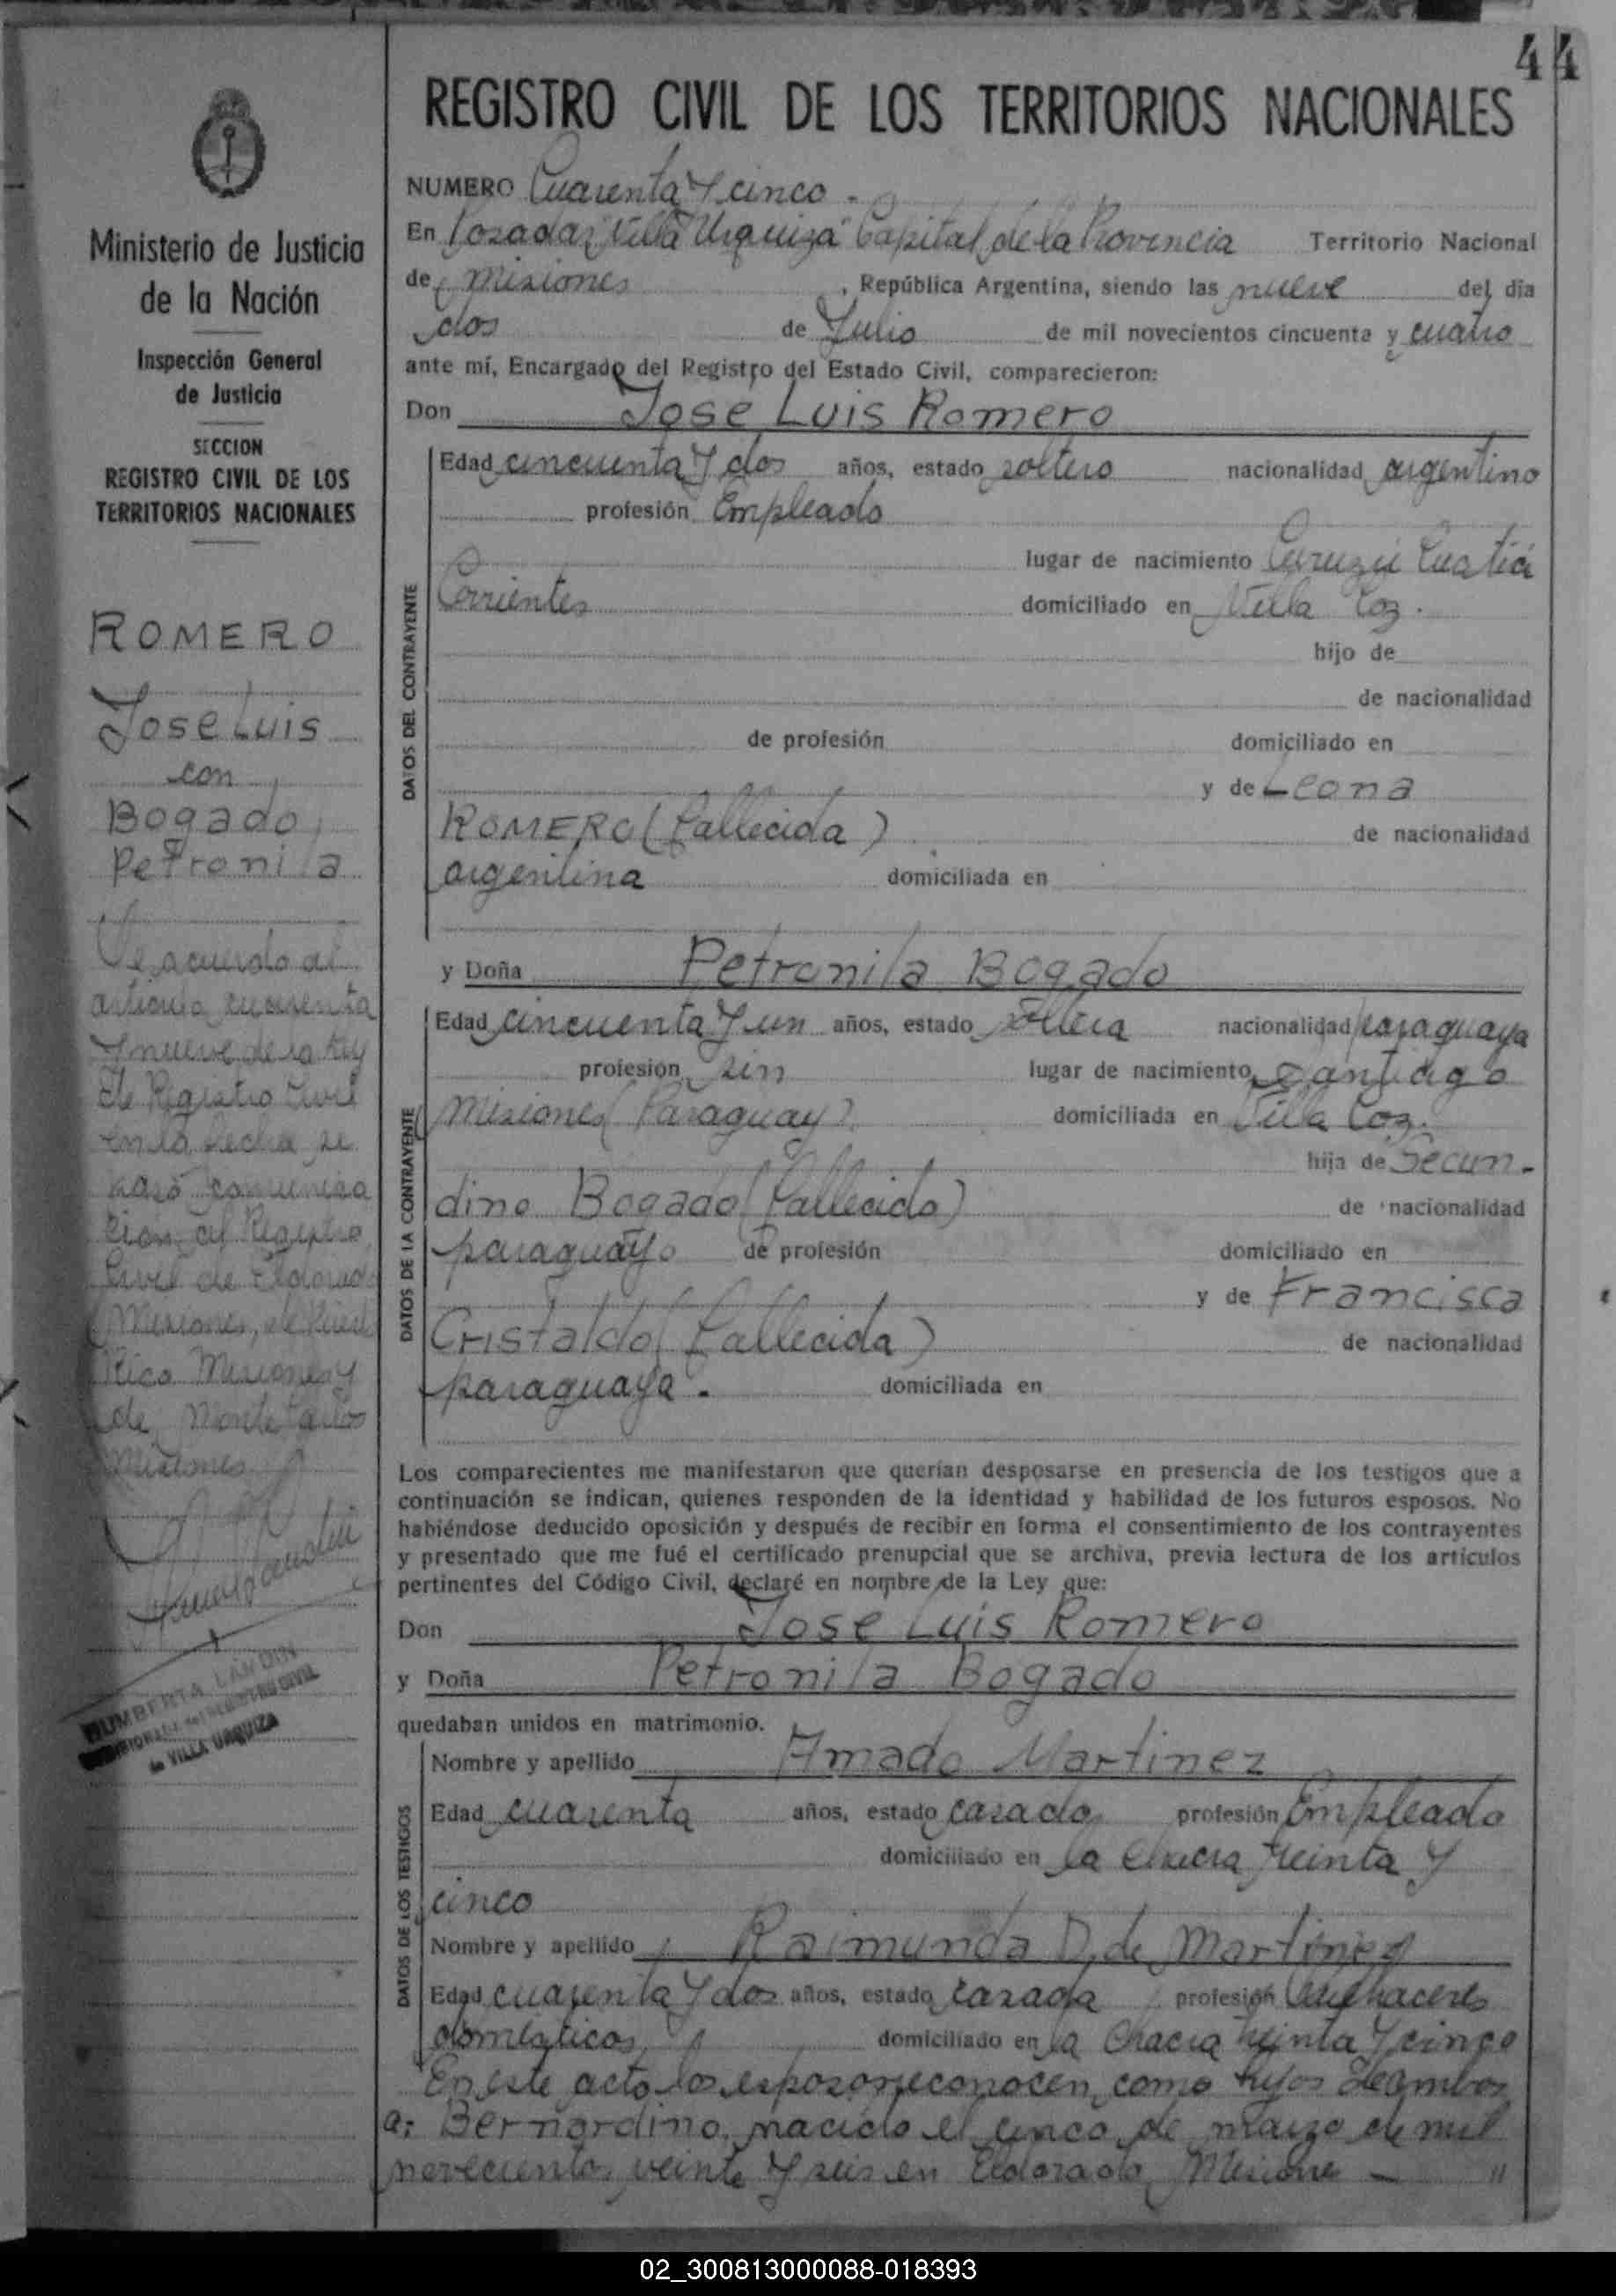 44
REGISTRO CIVIL DE LOS TERRITORIOS NACIONALES
Ministerio de Justicia
de la Nación
Inspección General
de Justicia
SECCION
REGISTRO CIVIL DE LOS
TERRITORIOS NACIONALES
ROMERO
Jose Luis
con
Bogado
Petronila
De acuerdo al
articulo cuarenta
y nueve de la ley
de Registro Civil
en la fecha se
pasó comunica
cion al Registro
Civil de Eldorado
Misiones, de Puerto
Rico Misiones y
de Monte Carlo
Misiones
HUMBERTA LANDIN
REGISTRO CIVIL
de VILLA URQUIZA
NUMERO Cuarenta y cinco.
En Posadas "Villa Urquiza" Capital de la Provincia Territorio Nacional
de Misiones, República Argentina, siendo las nueve del día
dos de Julio de mil novecientos cincuenta y cuatro
ante mí, Encargado del Registro del Estado Civil, comparecieron:
Don Jose Luis Romero
DATOS DEL CONTRAYENTE
Edad cincuenta y dos años, estado soltero nacionalidad argentino
profesión Empleado
lugar de nacimiento Curuzú Cuatiá
Corrientes domiciliado en Villa Coz.
hijo de
de nacionalidad
de profesión domiciliado en
y de Leona
ROMERO (fallecida) de nacionalidad
argentina domiciliada en
y Doña Petronila Bogado
DATOS DE LA CONTRAYENTE
Edad cincuenta y un años, estado soltera nacionalidad paraguaya
profesión sin lugar de nacimiento Santiago
Misiones (Paraguay) domiciliada en Villa Coz.
hija de Secun-
dino Bogado (fallecido) de nacionalidad
paraguayo de profesión domiciliado en
y de Francisca
Cristaldo (fallecida) de nacionalidad
paraguaya. domiciliada en
Los comparecientes me manifestaron que querían desposarse en presencia de los testigos que a
continuación se indican, quienes responden de la identidad y habilidad de los futuros esposos. No
habiéndose deducido oposición y después de recibir en forma el consentimiento de los contrayentes
y presentado que me fué el certificado prenupcial que se archiva, previa lectura de los artículos
pertinentes del Código Civil, declaré en nombre de la Ley que:
Don Jose Luis Romero
y Doña Petronila Bogado
quedaban unidos en matrimonio.
DATOS DE LOS TESTIGOS
Nombre y apellido Amado Martinez
Edad cuarenta años, estado casado profesión Empleado
domiciliado en la chacra treinta y
cinco
Nombre y apellido Raimunda D. de Martinez
Edad cuarenta y dos años, estado casada profesión Quehaceres
domésticos domiciliado en la Chacra treinta y cinco
En este acto los esposos reconocen como hijos de ambos
a: Bernardino, nacido el cinco de marzo de mil
novecientos veinte y seis en Eldorado, Misiones — "
02_300813000088-018393